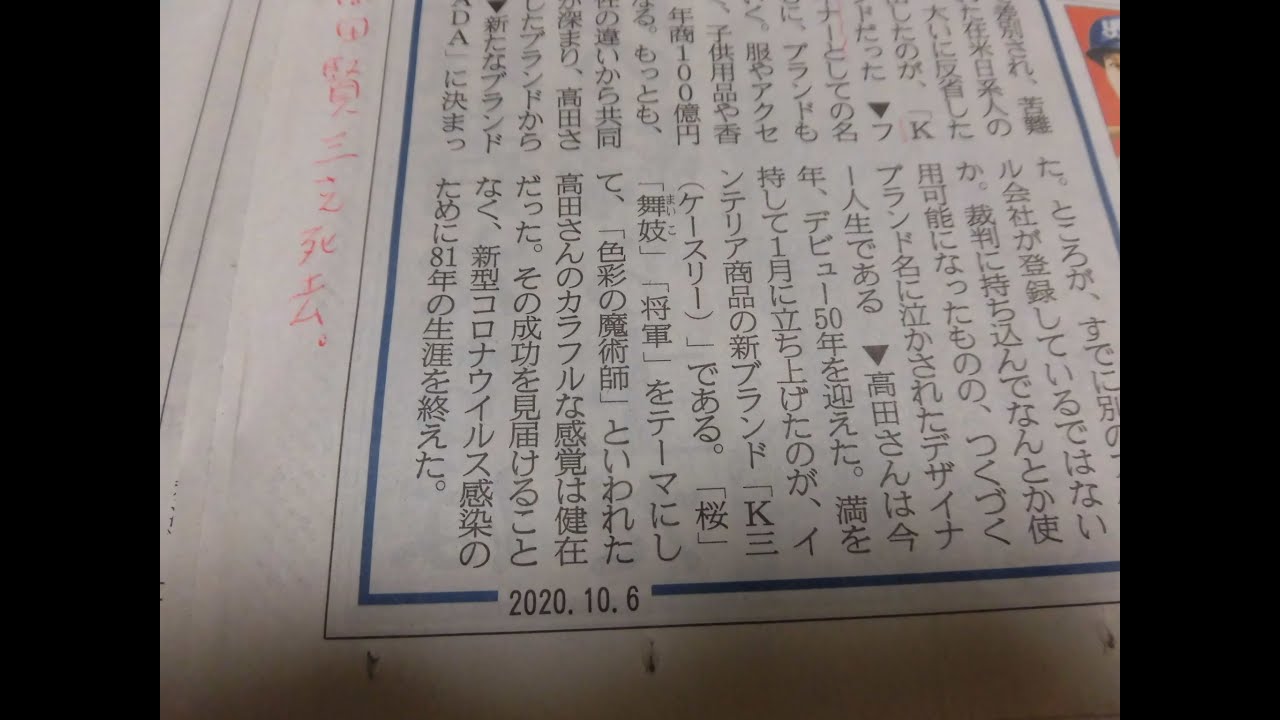 差別され、苦難
た在米日系人の
大いに反省した
したのが、「K
ドだった ▼フ
ナーとしての名
に、ブランドも
く。服やアクセ
、子供用品や香
年商100億円
なる。もっとも、
性の違いから共同
が深まり、高田さ
したブランドから
▼新たなブランド
ADA」に決まっ
た。ところが、すでに別の
ル会社が登録しているではない
か。裁判に持ち込んでなんとか使
用可能になったものの、つくづく
ブランド名に泣かされたデザイナ
ー人生である ▼高田さんは今
年、デビュー50年を迎えた。満を
持して1月に立ち上げたのが、イ
ンテリア商品の新ブランド「K三
(ケースリー)」である。「桜」
「舞妓(まいこ)」「将軍」をテーマにし
て、「色彩の魔術師」といわれた
高田さんのカラフルな感覚は健在
だった。その成功を見届けること
なく、新型コロナウイルス感染の
ために81年の生涯を終えた。
2020.10.6
田賢三之死去。